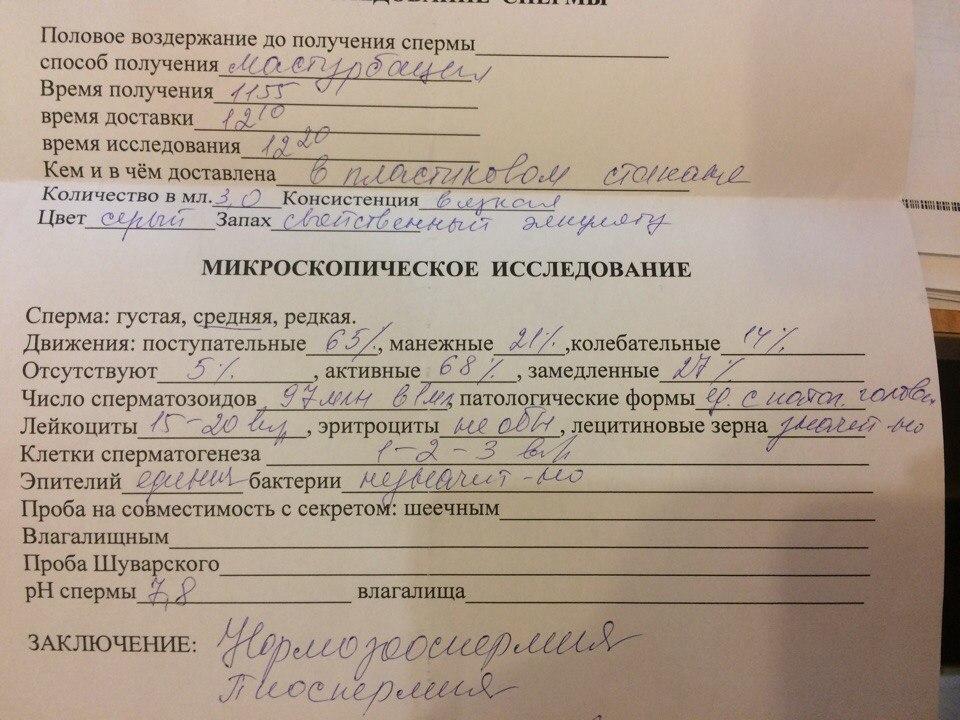 ИССЛЕДОВАНИЕ СПЕРМЫ
Половое воздержание до получения спермы
способ получения мастурбация
Время получения 11 55
время доставки 12 10
время исследования 12 20
Кем и в чём доставлена в пластиковом стакане
Количество в мл. 3,0 Консистенция вязкая
Цвет серый Запах свойственный эякуляту
МИКРОСКОПИЧЕСКОЕ ИССЛЕДОВАНИЕ
Сперма: густая, средняя, редкая.
Движения: поступательные 65%, манежные 21%, колебательные 14%
Отсутствуют 5%, активные 68%, замедленные 27%
Число сперматозоидов 97 млн в 1 мл, патологические формы ед. с патол. головк
Лейкоциты 15-20 в п/з, эритроциты не обн, лецитиновые зерна значит-но
Клетки сперматогенеза 1-2-3 в п/з
Эпителий единич бактерии незначит-но
Проба на совместимость с секретом: шеечным
Влагалищным
Проба Шуварского
рН спермы 7,8 влагалища
ЗАКЛЮЧЕНИЕ: Нормозооспермия
Пиоспермия